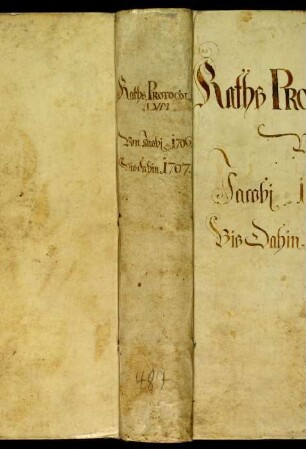 Raths Protocol
LVM
Von Jacobi 1706.
Bis dahin 1707.
484
Raths Pro
Jacobj 1
Bis dahin.